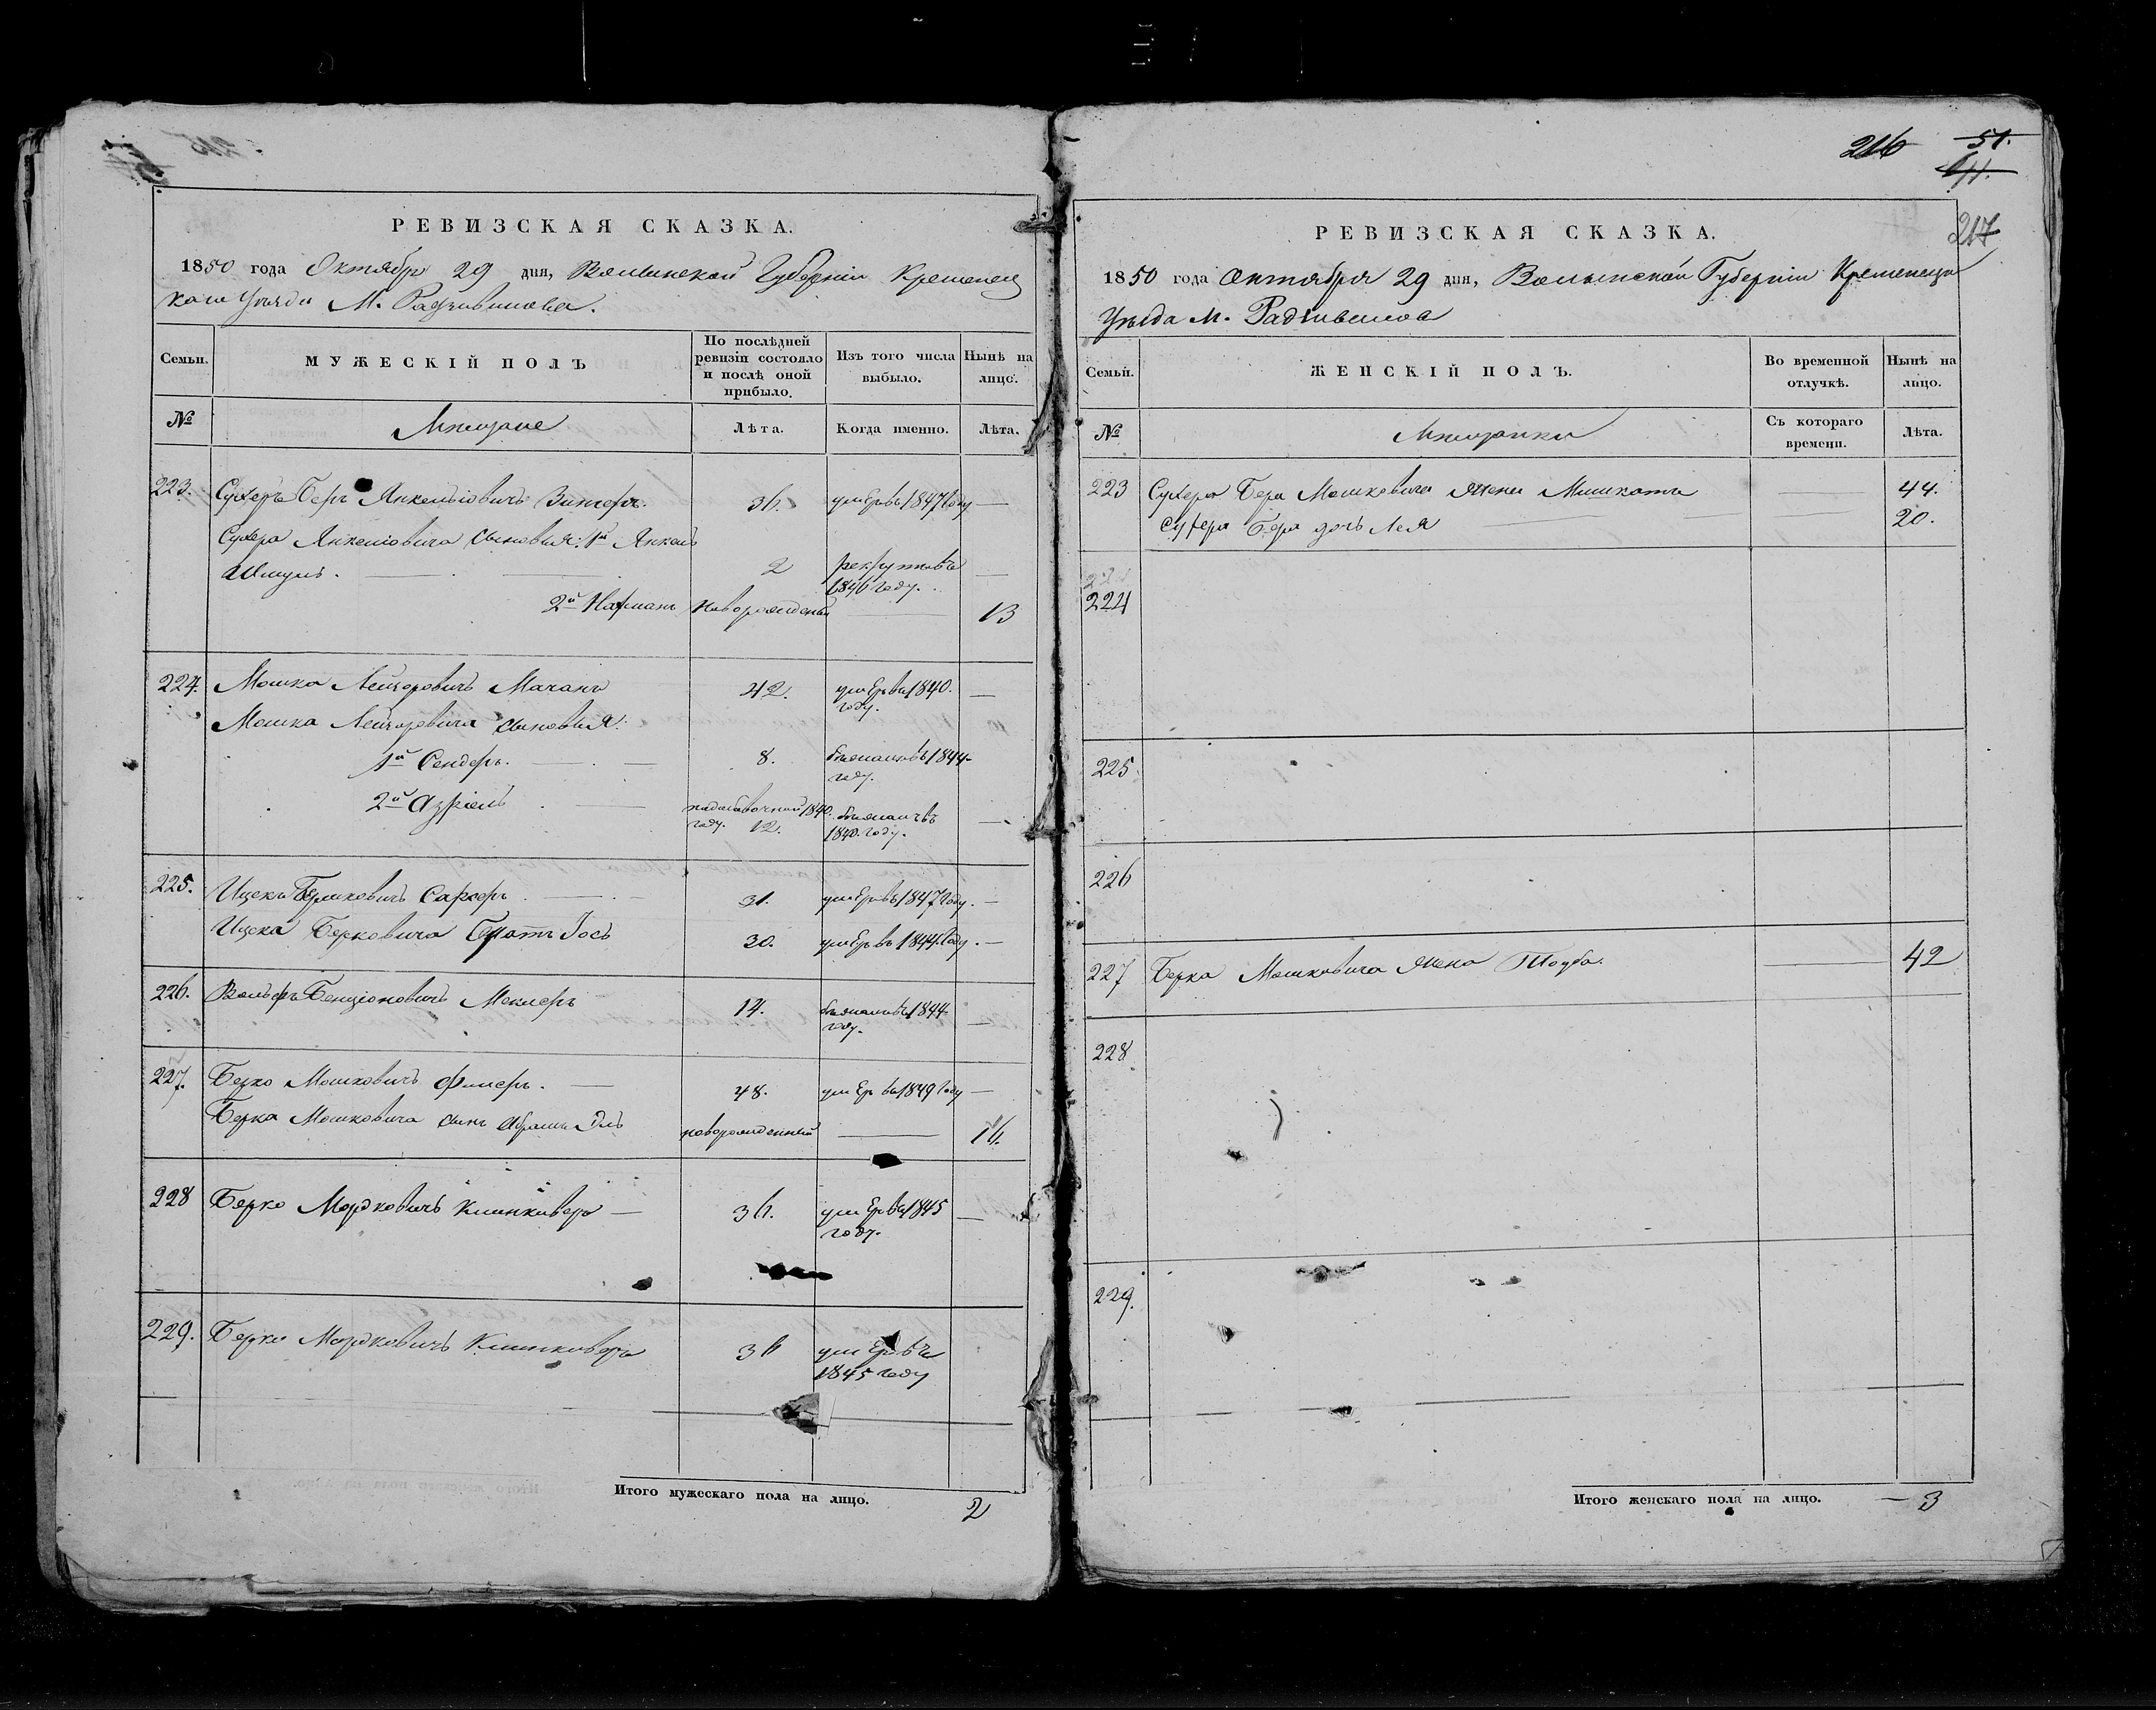 РЕВИЗСКАЯ СКАЗКА.
1850 года Октября 29 дня, Волынской Губерніи Кременец
каго Уѣзда М. Радзивилова.
Семьи.
МУЖЕСКІЙ ПОЛЪ
По послѣдней ревизіи состояло и послѣ оной прибыло.
Изъ того числа выбыло.
Нынѣ на лицо.
№
Мѣщане
Лѣта.
Когда именно.
Лѣта.
223. Сухеръ Беръ Янкелiовичъ 36. умеръ въ 1847 году —
Сухера Янкелiовича сыновья: 1й Янкель
Шмуль. 2 рекрутъ въ 1846 году. —
2й Нахманъ новорожденый — 13
224. Мошко Лейзоровичъ 42. умеръ въ 1840. году. —
Мошка Лейзоровича сыновья:
1й Сендеръ. 8. бѣжалъ въ 1844 году.
2й Азріель 1840. году. 12. бѣжалъ въ 1840. году. —
225. Ицекъ Берковичъ 31. умеръ въ 1847 году. —
Ицека Берковича братъ Іось 30. умеръ въ 1844 году. —
226. Вольфъ Бенціоновичъ Меклеръ 14. бѣжалъ въ 1844 году. —
227. Берко Мошковичъ 48. умеръ въ 1849 году —
Берка Мошковича сынъ новорожденный — 16.
228 Берко Мордковичъ 36. умеръ въ 1845 году. —
229. Берко Мордковичъ 36 умеръ въ 1845 году
Итого мужескаго пола на лицо. 2
216 51.
217
РЕВИЗСКАЯ СКАЗКА.
1850 года Октября 29 дня, Волынской Губерніи Кременецка
Уѣзда М. Радзивилова
Семьи.
ЖЕНСКІЙ ПОЛЪ.
Во временной отлучкѣ.
Нынѣ на лицо.
№
Мѣщанки
Съ котораго времени.
Лѣта.
223 Сухера Бера Мошковича жена — 44.
Сухера Бера дочь Лея — 20.
224
225.
226
227 Берка Мошковича жена Тауба. — 42
228
229.
Итого женскаго пола на лицо. — 3